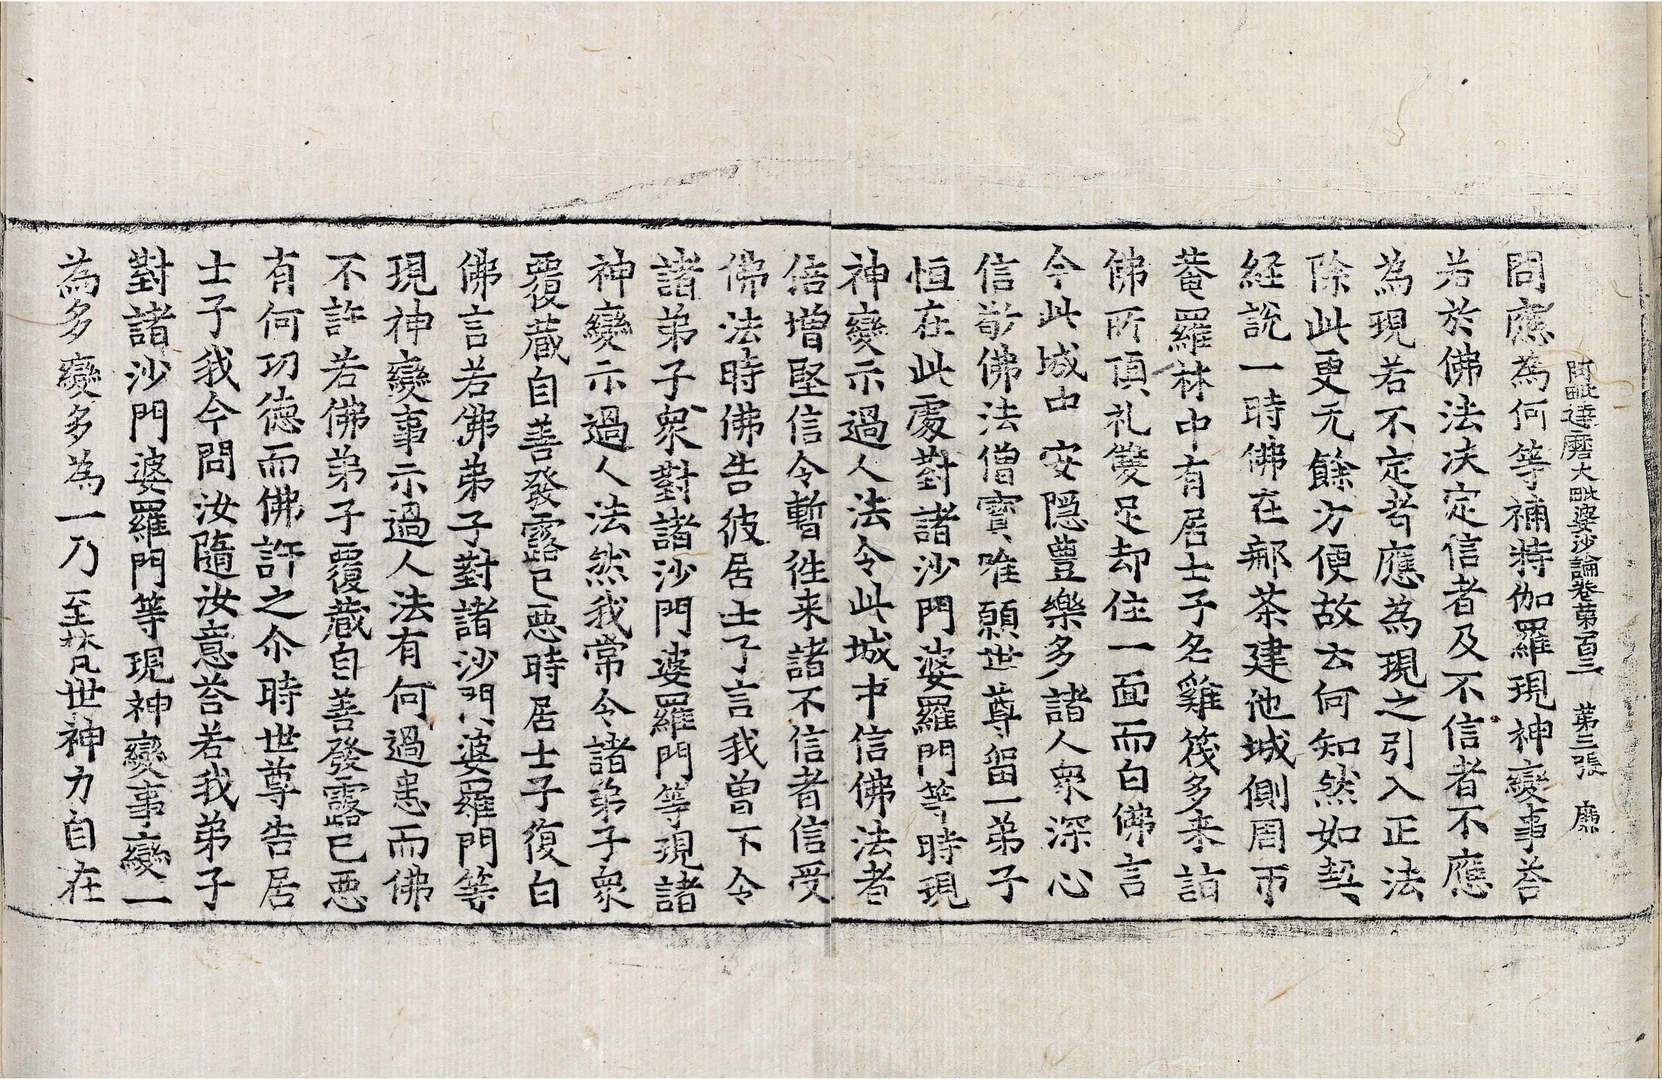 阿毗達磨大毗婆沙論卷第一百三 第三張 廉
問應為何等補特伽羅現神變事荅
若於佛法決定信者及不信者不應
為現若不定者應為現之引入正法
除此更无餘方便故云何知然如契
経說一時佛在那茶建他城側周帀
菴羅林中有居士子名雞筏多来詣
佛所頂礼雙足却住一面而白佛言
今此城中安隱豊樂多諸人衆深心
信敬佛法僧寶唯願世尊留一弟子
恒在此處對諸沙門婆羅門等時現
神變示過人法令此城中信佛法者
倍增堅信令暫徃来諸不信者信受
佛法時佛告彼居士子言我曾不令
諸弟子衆對諸沙門婆羅門等現諸
神變示過人法然我常令諸弟子衆
覆蔵自善發露已悪時居士子復白
佛言若佛弟子對諸沙門婆羅門等
現神變事示過人法有何過患而佛
不許若佛弟子覆蔵自善發露已悪
有何功德而佛許之尒時世尊告居
士子我今問汝隨汝意荅若我弟子
對諸沙門婆羅門等現神變事變一
為多變多為一乃至梵世神力自在